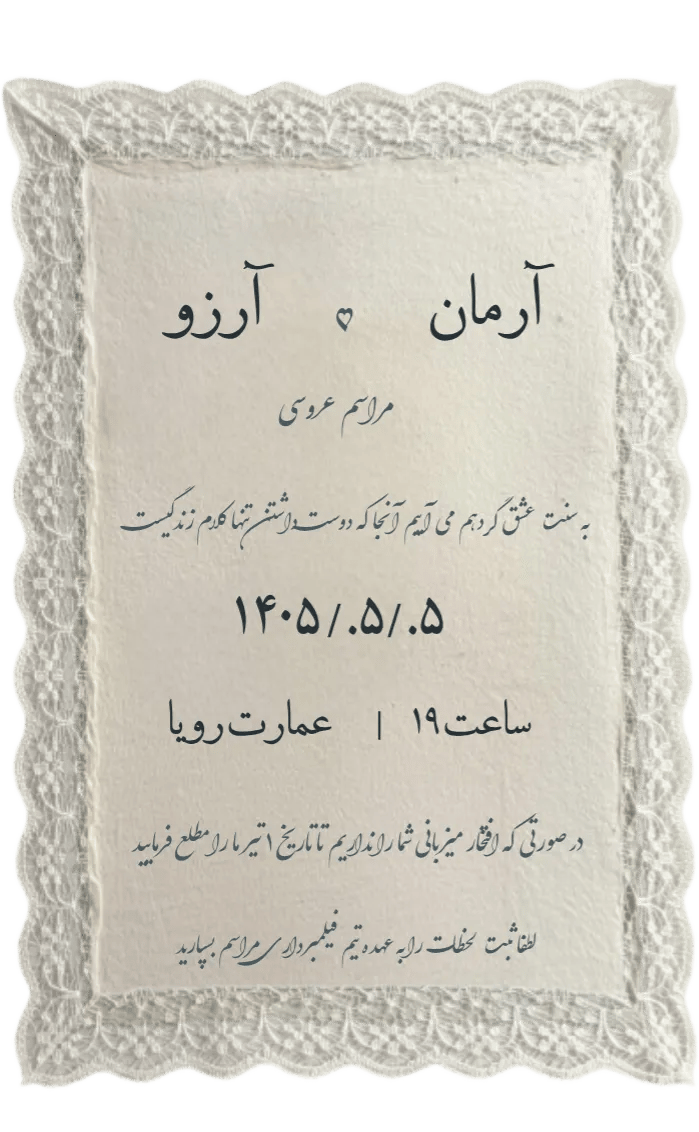 آرمان ♡ آرزو
مراسم عروسی
به سنت عشق گرد هم می آییم آنجا که دوست داشتن تنها کلام زندگیست
۱۴۰۵/.۵/.۵
ساعت ۱۹ | عمارت رویا
در صورتی که افتخار میزبانی شما را نداریم تا تاریخ ۱ تیر ما را مطلع فرمایید
لطفا ثبت لحظات را به عهده تیم فیلمبرداری مراسم بسپارید